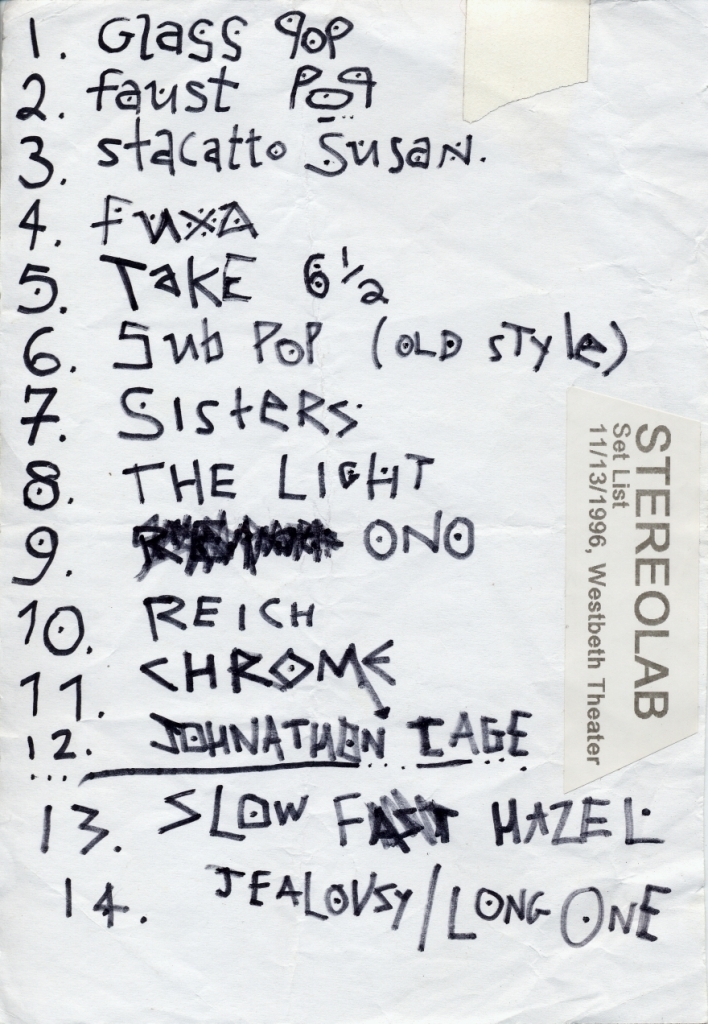 1. Glass POP
2. faust POP
3. stacatto SUSAN.
4. FUXA
5. TAKE 6 1/2
6. Sub POP (OLD STYle)
7. SISTERS
8. THE LIGHT
9. ONO
10. REICH
11. CHROME
12. JOHNATHON CAGE
13. SLOW FAST HAZEL
14. JEALOUSY/LONG ONE
STEREOLAB
Set List
11/13/1996, Westbeth Theater